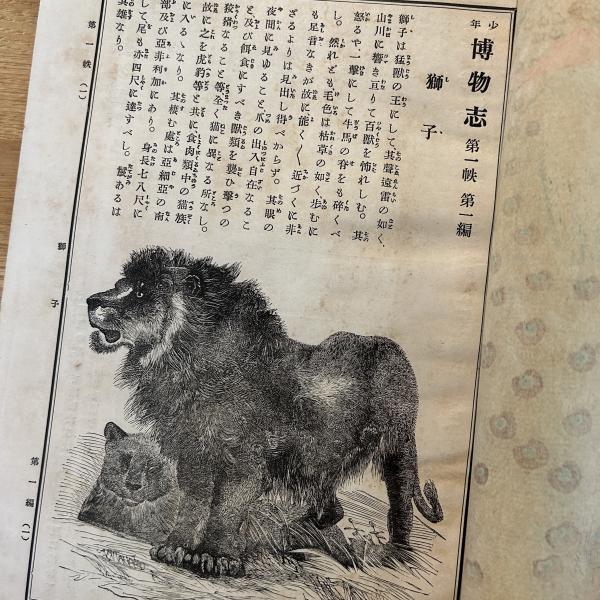 少年 博物志 第一帙 第一編
獅子
獅子は猛獸の王にして、其聲遠雷の如く、
山川に響き亘りて百獸を怖れしむ。其
怒るや、一擊にして牛馬の脊をも碎くべ
し。然れども毛色は枯草の如く、歩むに
も足音なきが故に能く〱近づくに非
ざるよりは見出し得べからず。其眼の
夜間に見ゆること、爪の出入自在なるこ
と、及び餌食にすべき獸類を襲ひ擊つの
狡猾なること等全く猫に異なる所なし。
故に之を虎豹等と共に食肉類中の猫族
に入るゝなり。其棲む處は亞細亞の南
部及び亞非利加にあり。身長七八尺に
して尾も亦四尺に達すべし。鬣あるは
其雄なり。
第一帙(一)
獅子
第一編(一)